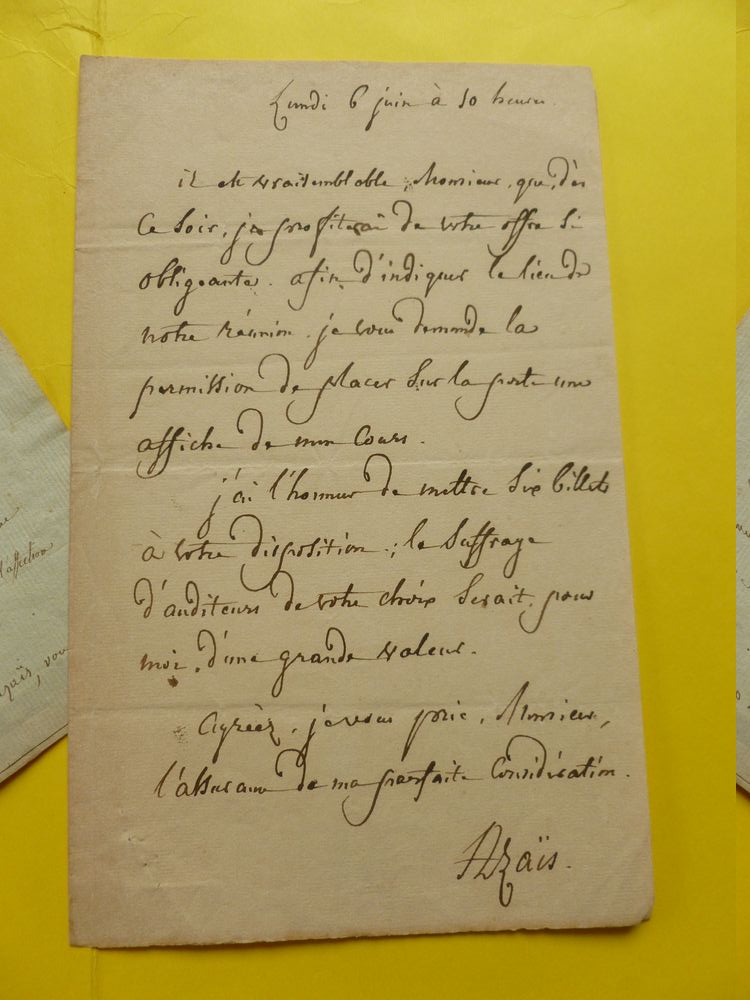 Lundi 6 juin à 10 heures.
il est vraisemblable, Monsieur, que, dès
ce soir, je profiterai de votre offre si
obligeante. afin d'indiquer le lieu de
notre réunion, je vous demande la
permission de placer sur la porte une
affiche de mon cours.
j'ai l'honneur de mettre six billets
à votre disposition ; le suffrage
d'auditeurs de votre choix serait, pour
moi, d'une grande valeur.
Agréez, je vous prie, Monsieur,
l'assurance de ma parfaite considération.
Azaïs.
l'affection
Azaïs, vou